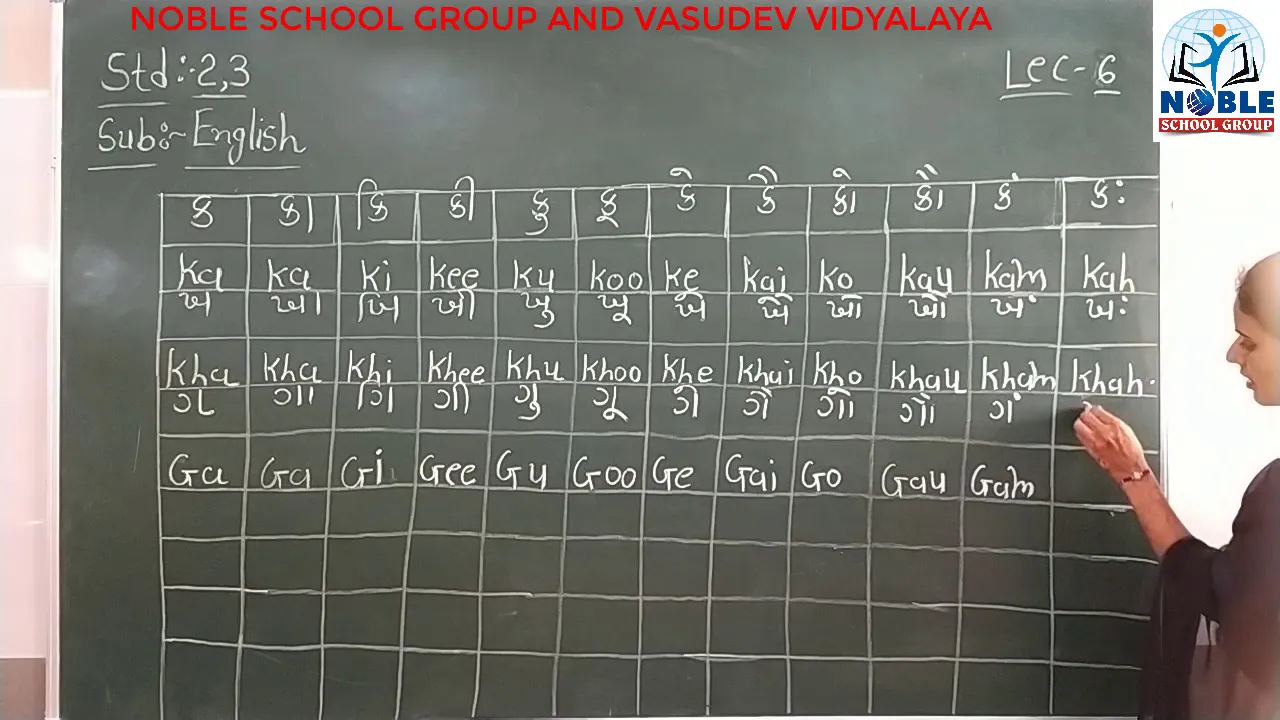 NOBLE SCHOOL GROUP AND VASUDEV VIDYALAYA
Std :- 2,3
Lec - 6
NOBLE
SCHOOL GROUP
Sub :- English
ક કા કિ કી કુ કૂ કે કૈ કો કૌ કં કઃ
Ka Ka Ki Kee Ku Koo Ke Kai Ko Kau Kam Kah
ખ ખા ખિ ખી ખુ ખૂ ખે ખૈ ખો ખૌ ખં ખઃ
Kha Kha Khi Khee Khu Khoo Khe Khai Kho Khau Kham Khah.
ગ ગા ગિ ગી ગુ ગૂ ગે ગૈ ગો ગૌ ગં
Ga Ga Gi Gee Gu Goo Ge Gai Go Gau Gam